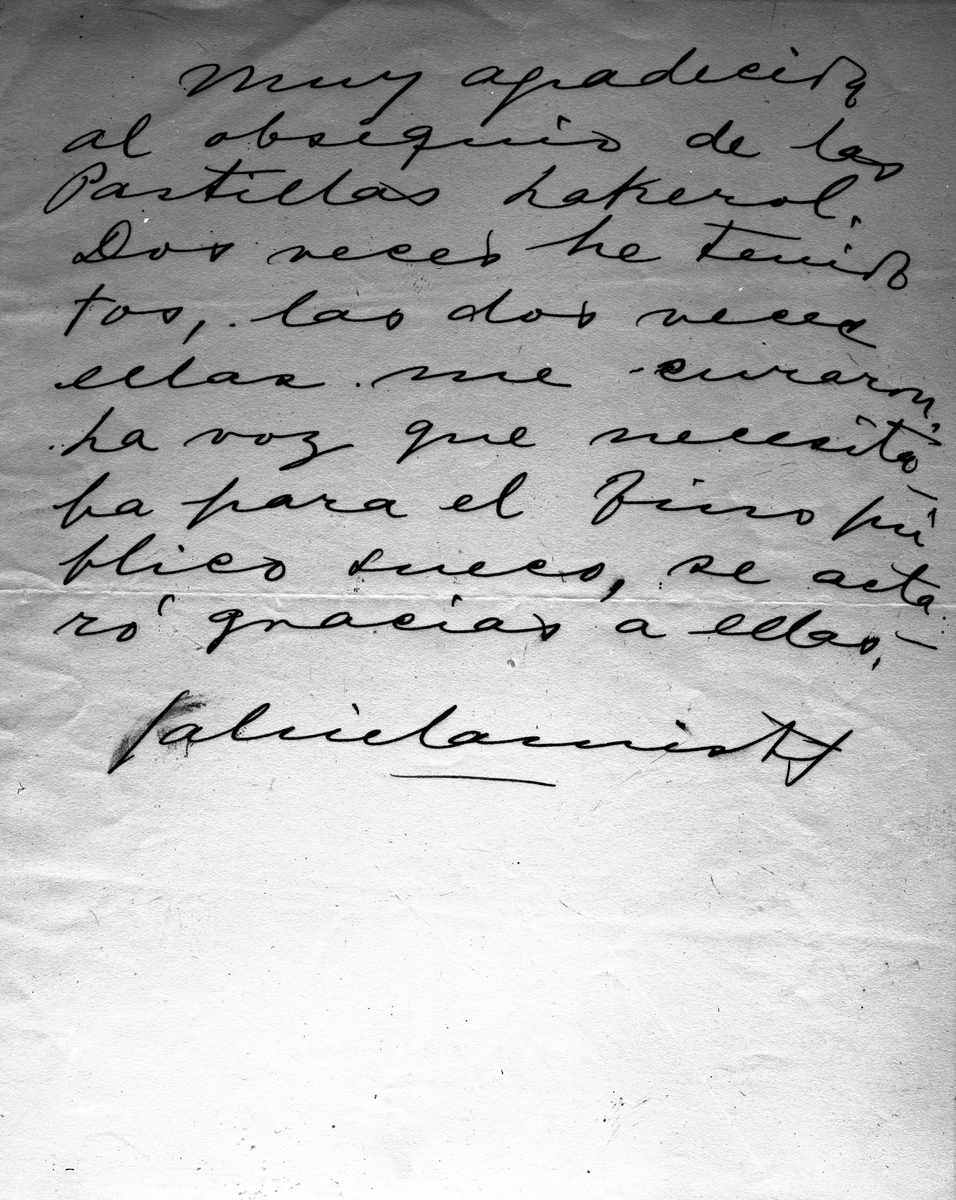 Muy agradecida
al obsequio de las
Pastillas Lakerol.
Dos veces he tenido
tos, las dos veces
ellas me curaron.
La voz que necesita-
ba para el fino pú-
blico sueco, se acla-
ró gracias a ellas.-
Gabriela Mistral